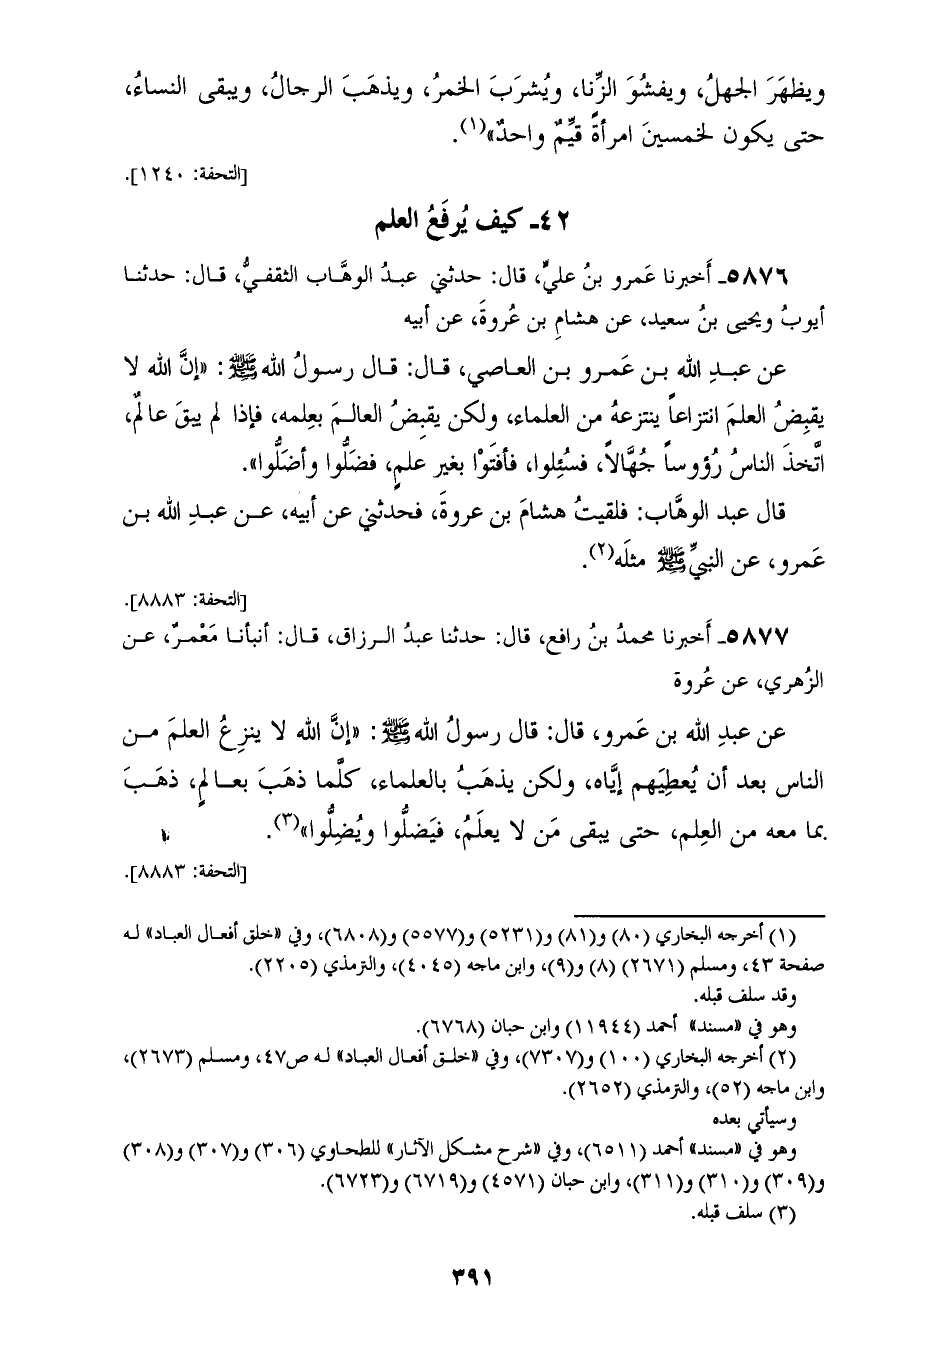 ويظهَرَ الجهلُ، ويفشُوَ الزِّنا، ويُشرَبَ الخمرُ، ويذهَبَ الرجالُ، ويبقى النساءُ،
حتى يكون لخمسينَ امرأةً قيِّمٌ واحدٌ»(١).
[التحفة: ١٢٤٠].
٤٢ـ كيف يُرفَعُ العلم
٥٨٧٦ـ أَخبرنا عَمرو بنُ عليٍّ، قال: حدثني عبدُ الوهَّاب الثقفيُّ، قال: حدثنا
أيوبُ ويحيى بنُ سعيد، عن هشامِ بن عُروةَ، عن أبيه
عن عبدِ الله بن عَمرو بن العاصي، قال: قال رسولُ الله ﷺ: «إنَّ الله لا
يقبِضُ العلمَ انتزاعاً ينتزعهُ من العلماء، ولكن يقبِضُ العالمَ بعِلمه، فإذا لم يبقَ عالمٌ،
اتَّخذَ الناسُ رُؤوساً جُهَّالاً، فسُئِلوا، فأفتَوْا بغير علمٍ، فضَلُّوا وأضَلُّوا».
قال عبد الوهَّاب: فلقيتُ هشامَ بن عروةَ، فحدثني عن أبيه، عن عبدِ الله بن
عَمرو، عن النبيِّ ﷺ مثلَه(٢).
[التحفة: ٨٨٨٣].
٥٨٧٧ـ أَخبرنا محمدُ بنُ رافع، قال: حدثنا عبدُ الرزاق، قال: أنبأنا مَعْمرٌ، عن
الزُهري، عن عُروة
عن عبدِ الله بن عَمرو، قال: قال رسولُ الله ﷺ: «إنَّ الله لا ينزِعُ العلمَ من
الناس بعد أن يُعطِيَهم إيَّاه، ولكن يذهَبُ بالعلماء، كلَّما ذهَبَ بعالمٍ، ذهَبَ
بما معه من العِلم، حتى يبقى مَن لا يعلَمُ، فيَضلُّوا ويُضِلُّوا»(٣).
[التحفة: ٨٨٨٣].
(١) أخرجه البخاري (٨٠) و(٨١) و(٥٢٣١) و(٥٥٧٧) و(٦٨٠٨)، وفي «خلق أفعال العباد» له
صفحة ٤٣، ومسلم (٢٦٧١) (٨) و(٩)، وابن ماجه (٤٠٤٥)، والترمذي (٢٢٠٥).
وقد سلف قبله.
وهو في «مسند» أحمد (١١٩٤٤) وابن حبان (٦٧٦٨).
(٢) أخرجه البخاري (١٠٠) و(٧٣٠٧)، وفي «خلق أفعال العباد» له ص٤٧، ومسلم (٢٦٧٣)،
وابن ماجه (٥٢)، والترمذي (٢٦٥٢).
وسيأتي بعده
وهو في «مسند» أحمد (٦٥١١)، وفي «شرح مشكل الآثار» للطحاوي (٣٠٦) و(٣٠٧) و(٣٠٨)
و(٣٠٩) و(٣١٠) و(٣١١)، وابن حبان (٤٥٧١) و(٦٧١٩) و(٦٧٢٣).
(٣) سلف قبله.
٣٩١